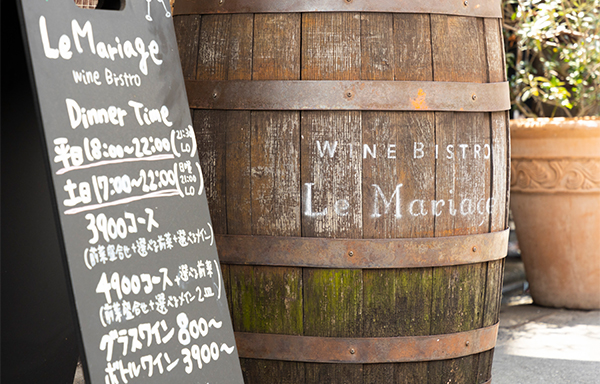 Le Mariage
Wine Bistro
Dinner Time
平日18:00~22:00(21:30 LO)
土日17:00~22:00(日曜 21:00 LO)
3900コース
(前菜盛合せ+選べる前菜+選べるメイン)
4900コース
(前菜盛合せ+選べる前菜+選べるメイン2皿)
グラスワイン800~
ボトルワイン3900~
WINE BISTRO
Le Mariage